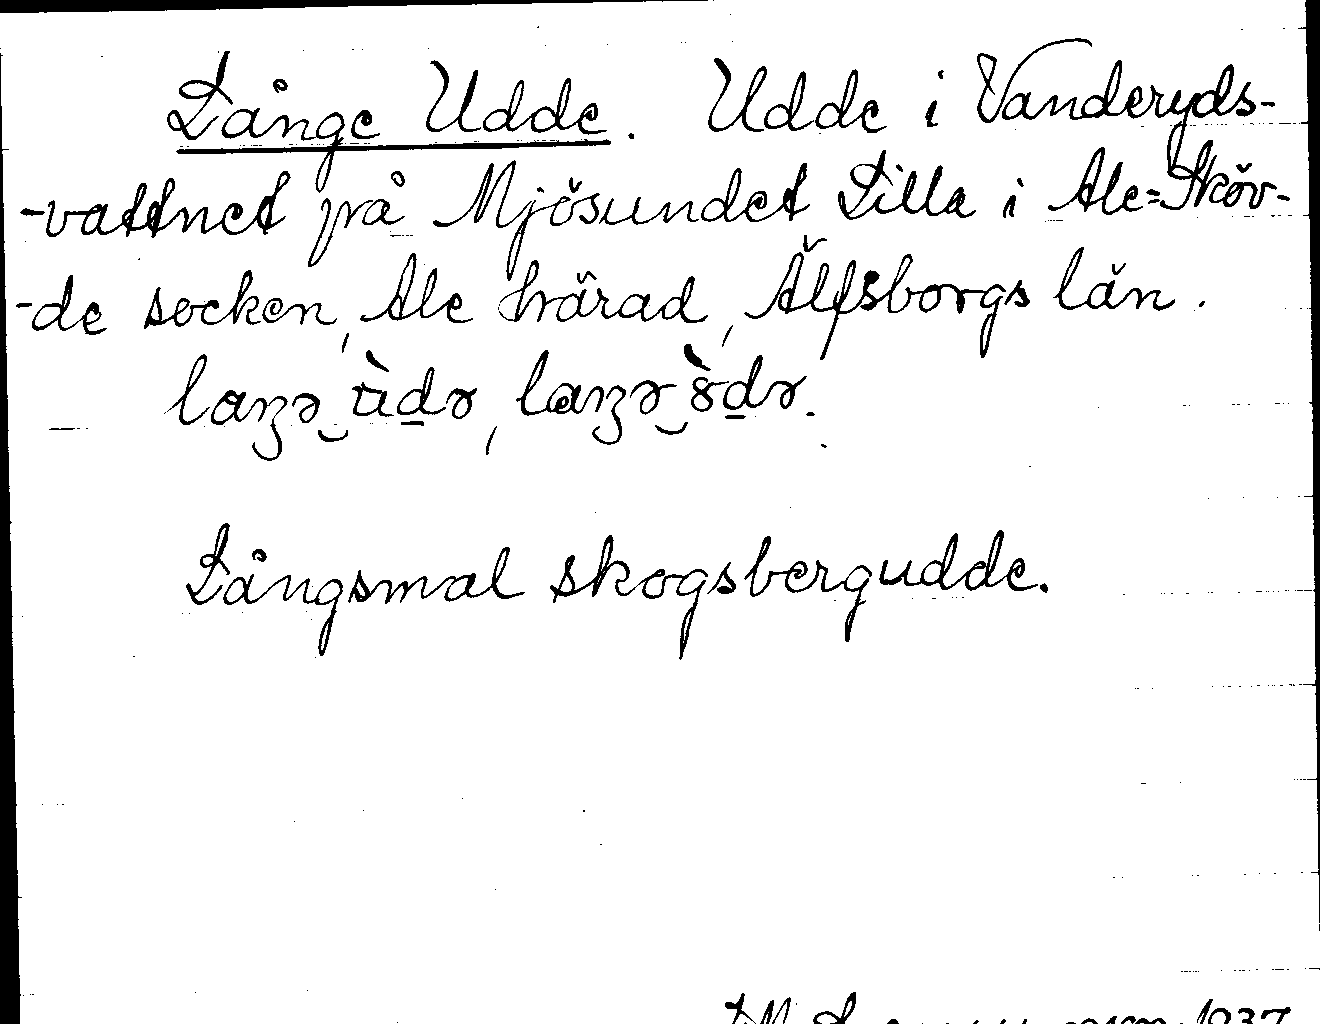 Långe Udde. Udde i Vanderyds-
-vattnet på Mjösundet Lilla i Ale=Sköv-
-de socken, Ale härad, Älfsborgs län.
Långsmal skogsbergudde.
1937